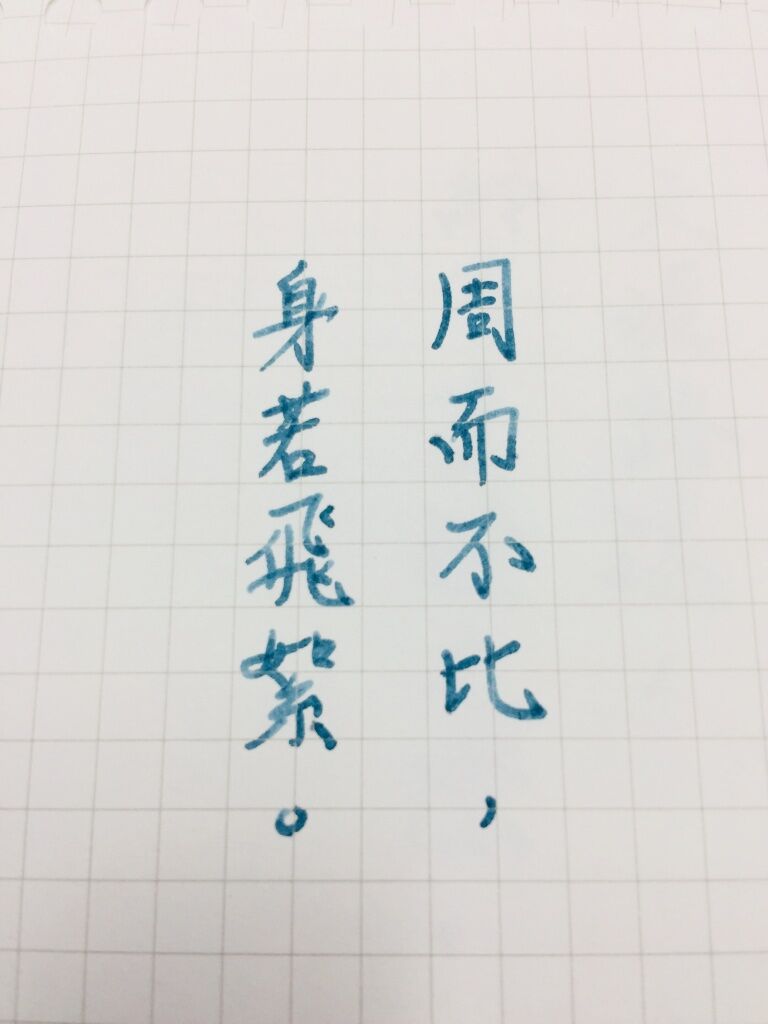 周而不比，
身若飛絮。